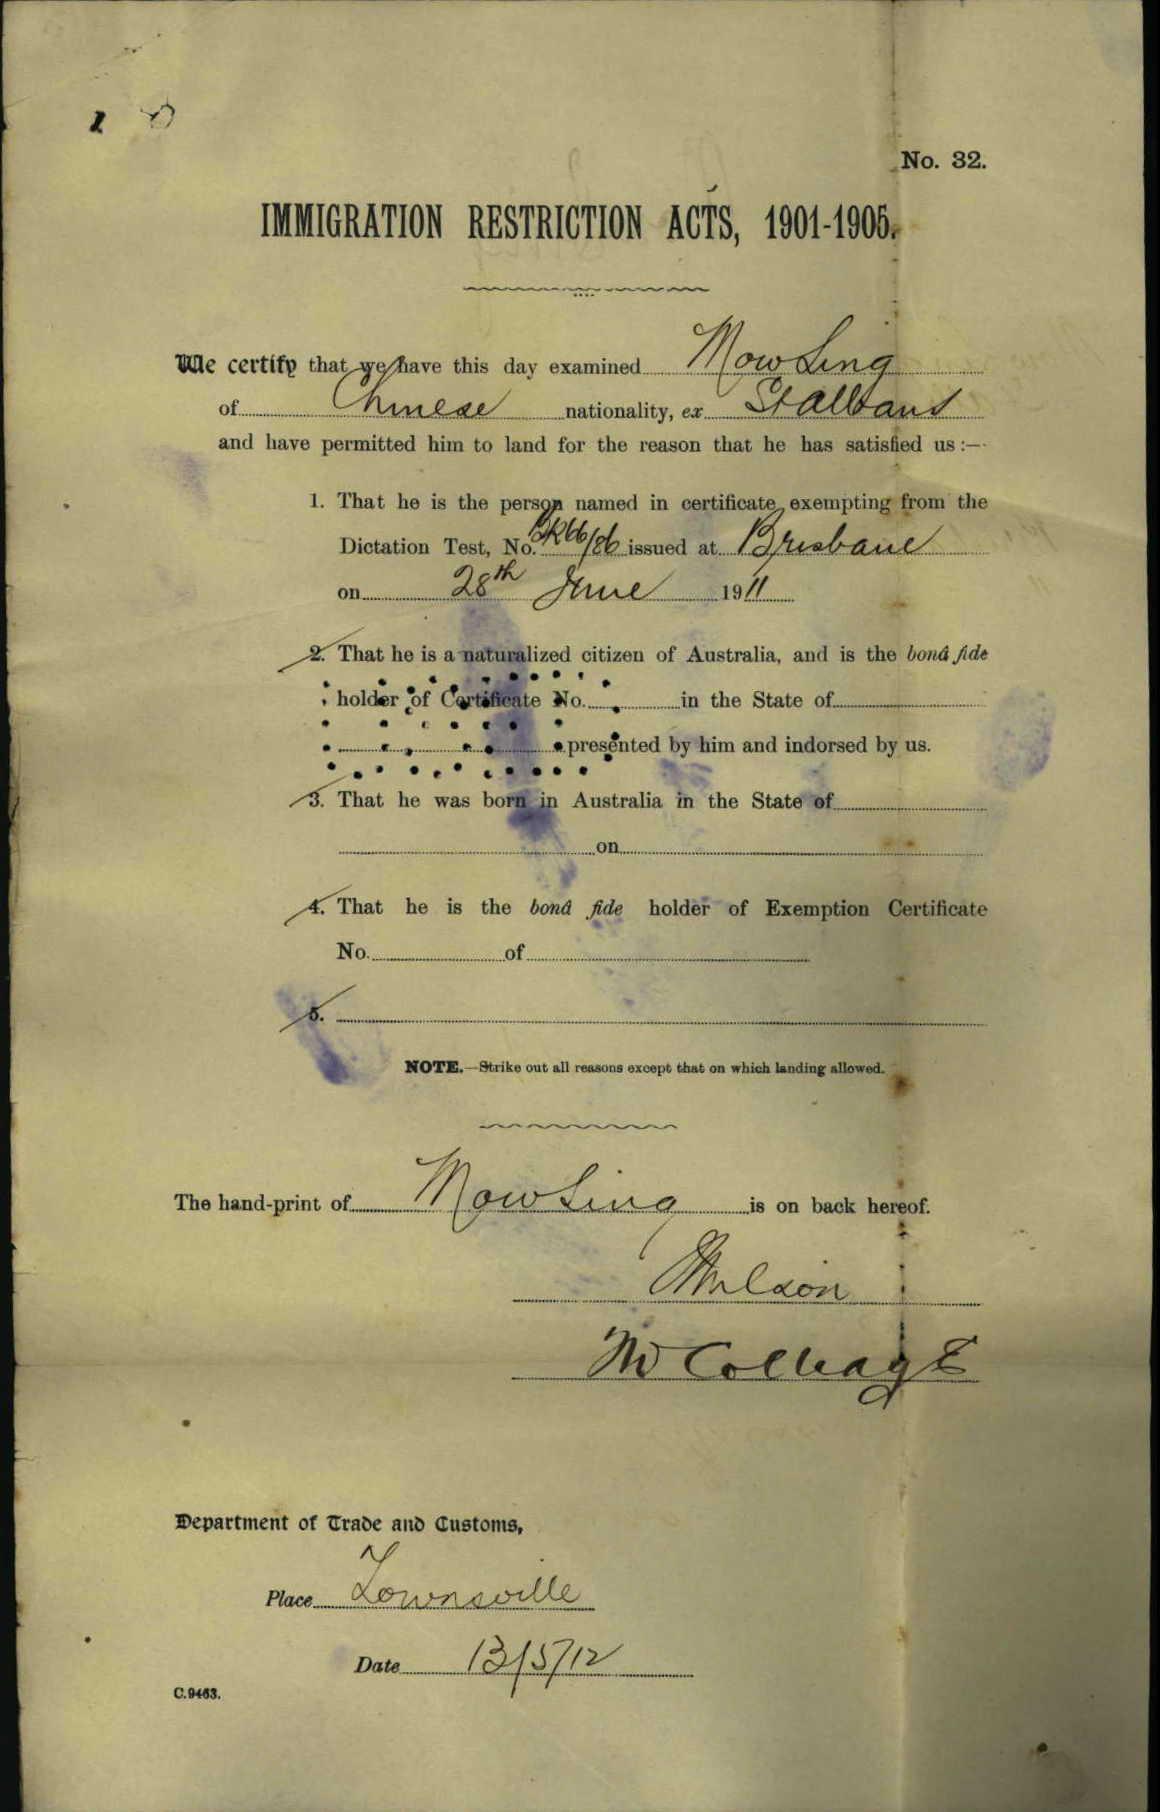 1
No. 32.
IMMIGRATION RESTRICTION ACTS, 1901-1905.
We certify that we have this day examined Mow Sing
of Chinese nationality, ex St Albans
and have permitted him to land for the reason that he has satisfied us:—
1. That he is the person named in certificate exempting from the
Dictation Test, No. 66/86 issued at Brisbane
on 28th June 1911
2. That he is a naturalized citizen of Australia, and is the bonâ fide
holder of Certificate No. in the State of
presented by him and indorsed by us.
3. That he was born in Australia in the State of
on
4. That he is the bonâ fide holder of Exemption Certificate
No. of
5.
NOTE.—Strike out all reasons except that on which landing allowed.
The hand-print of Mow Sing is on back hereof.
Department of Trade and Customs,
Place Townsville
Date 13/5/12
C.9463.